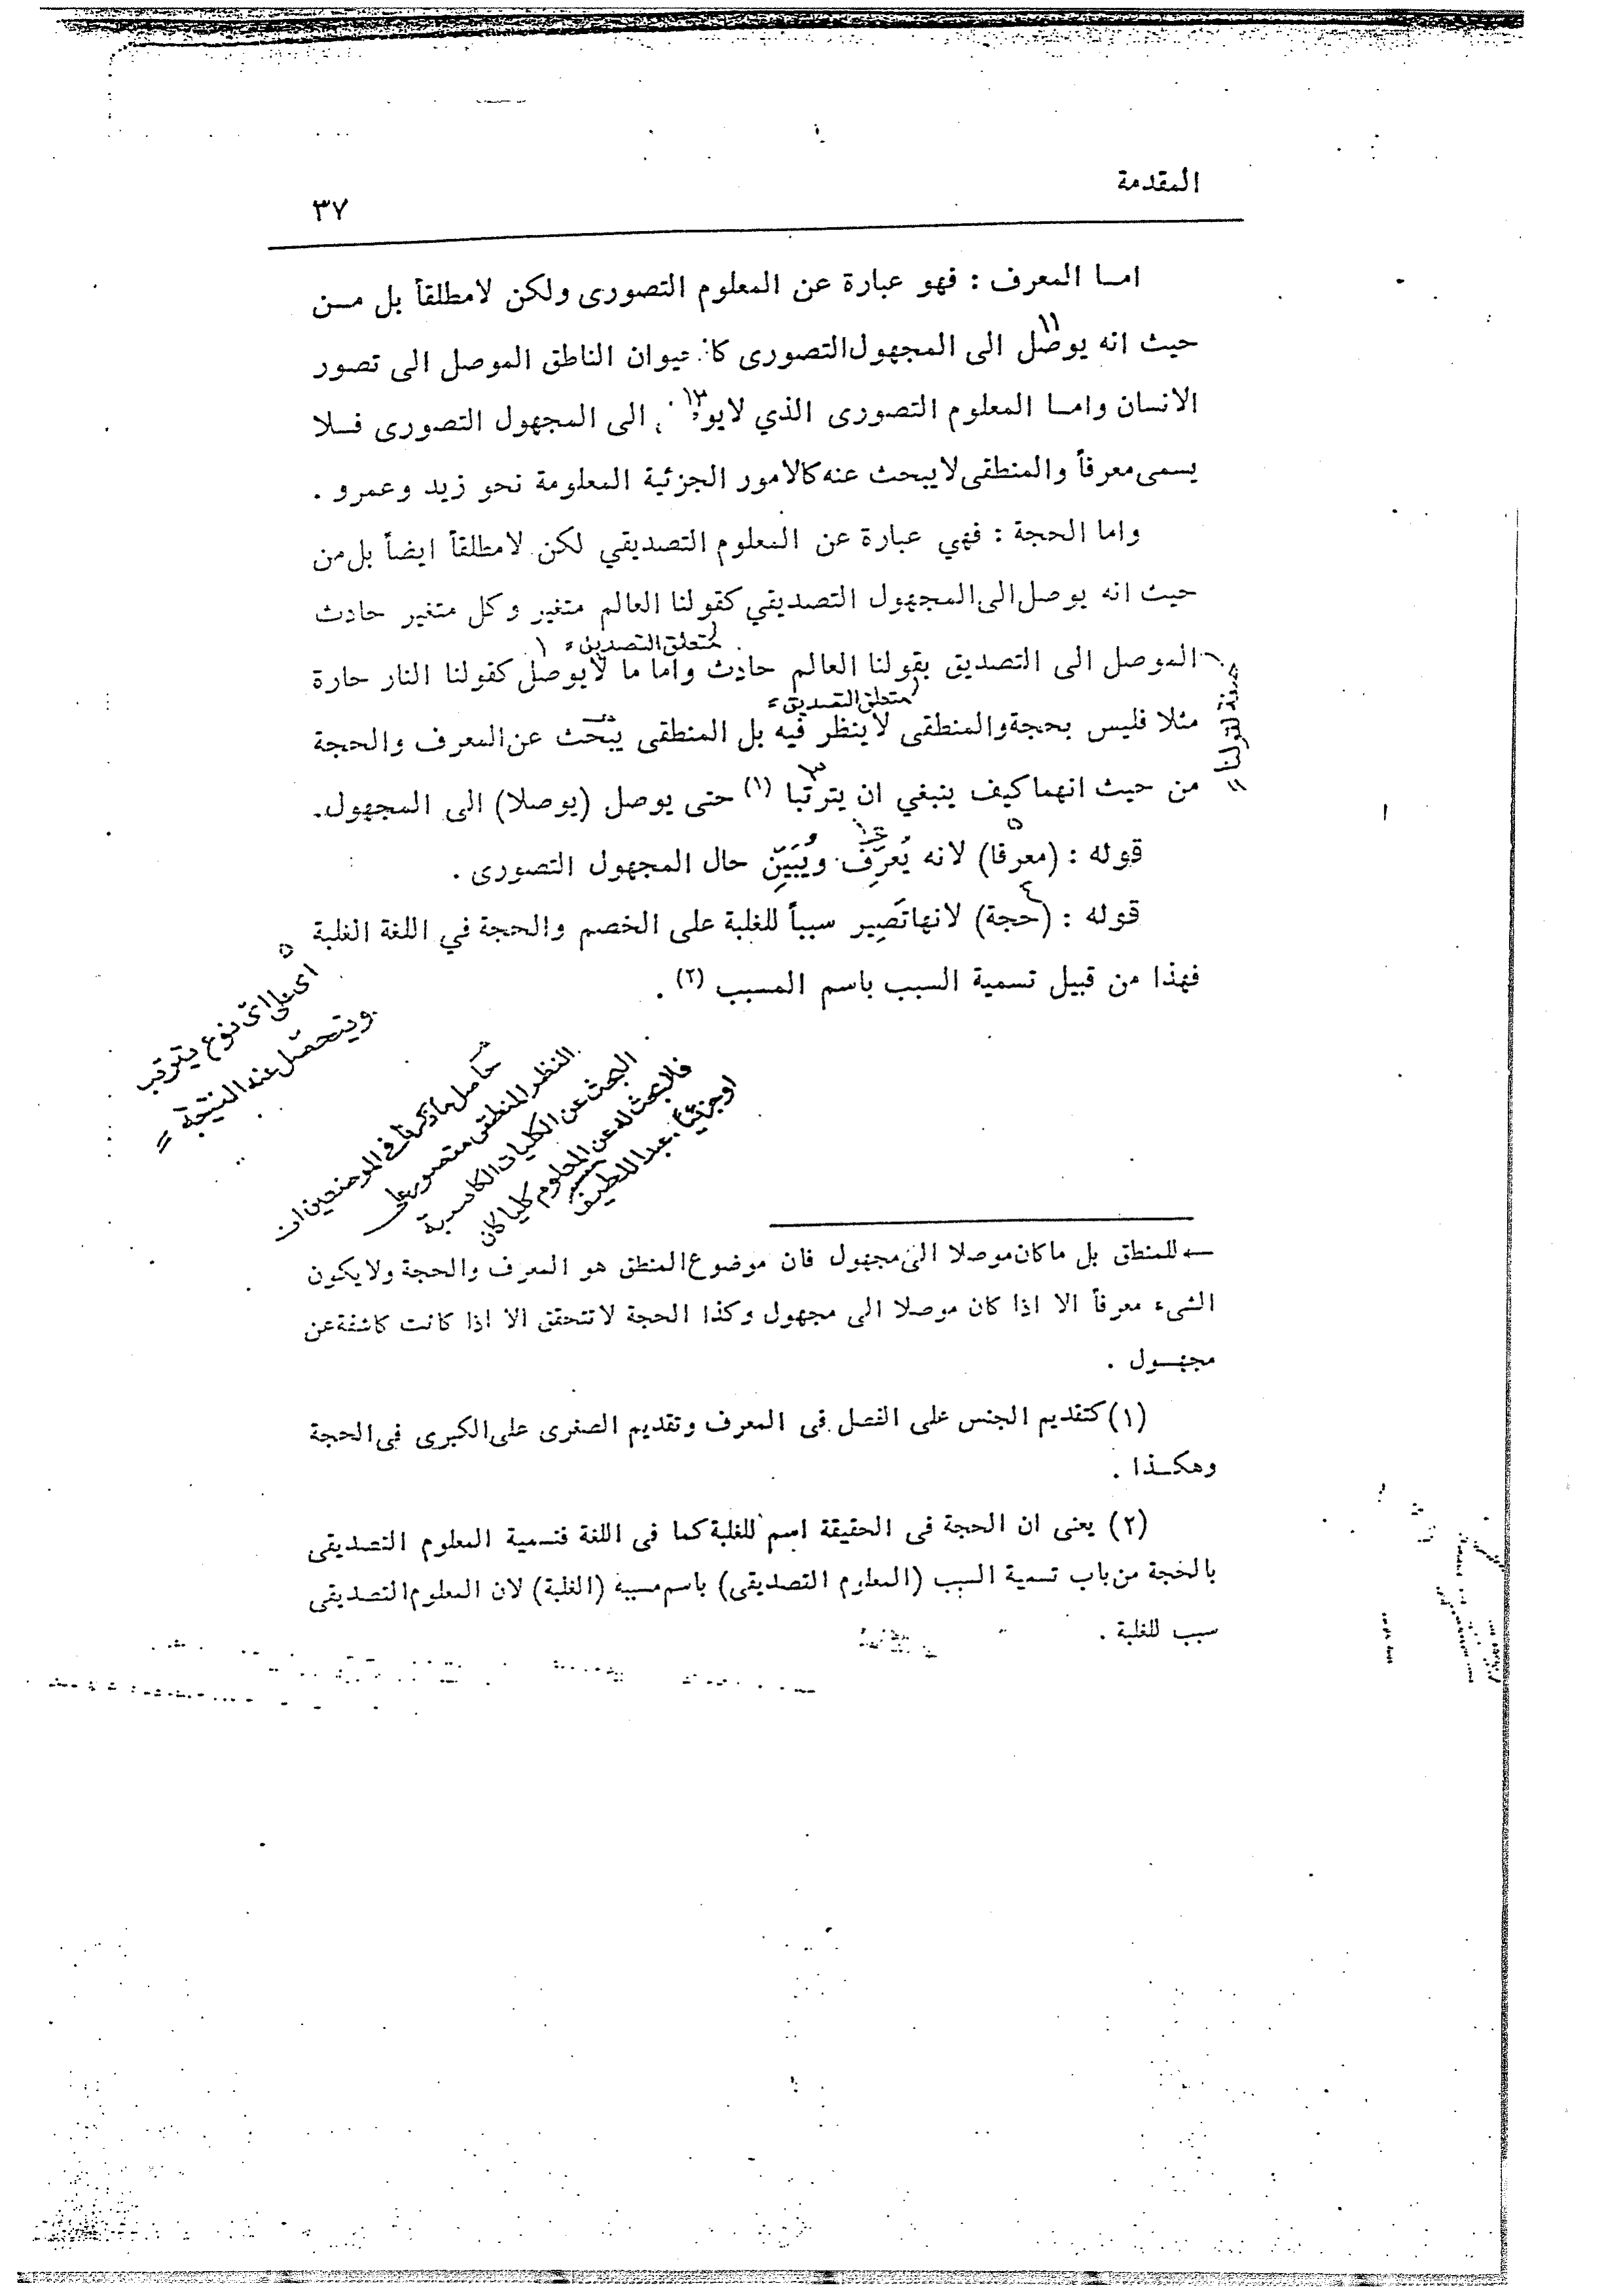 المقدمة
٣٧
اما المعرف : فهو عبارة عن المعلوم التصورى ولكن لامطلقاً بل من
حيث انه يوصل الى المجهول التصورى كالحيوان الناطق الموصل الى تصور
الانسان واما المعلوم التصورى الذي لايوصل الى المجهول التصورى فلا
يسمى معرفاً والمنطقى لايبحث عنه كالامور الجزئية المعلومة نحو زيد وعمرو .
واما الحجة : فهي عبارة عن المعلوم التصديقي لكن لامطلقاً ايضاً بل من
حيث انه يوصل الى المجهول التصديقي كقولنا العالم متغير وكل متغير حادث
متعلق التصديق = ١
الموصل الى التصديق بقولنا العالم حادث واما ما لايوصل كقولنا النار حارة
متعلق التصديق =
مثلا فليس بحجة والمنطقى لاينظر فيه بل المنطقى يبحث عن المعرف والحجة
من حيث انهما كيف ينبغي ان يترتبا (١) حتى يوصل (يوصلا) الى المجهول.
قوله : (معرفا) لانه يُعرِّف ويُبَيِّن حال المجهول التصورى .
قوله : (حجة) لانها تَصِير سبباً للغلبة على الخصم والحجة في اللغة الغلبة
فهذا من قبيل تسمية السبب باسم المسبب (٢) .
اى على اىّ نوع يترتب
ويتحصّل عنه النتيجة =
حاصل ما ذكرنا فى الموضعين ان
النظر المنطقى مقصور على
البحث عن الكليات الكاسبة
فالبحث له عن المعلوم كليا كان
او جزئيّاً. عبد اللطيف
← للمنطق بل ماكان موصلا الى مجهول فان موضوع المنطق هو المعرف والحجة ولايكون
الشىء معرفاً الا اذا كان موصلا الى مجهول وكذا الحجة لاتتحقق الا اذا كانت كاشفة عن
مجهول .
(١) كتقديم الجنس على الفصل فى المعرف وتقديم الصغرى على الكبرى فى الحجة
وهكذا .
(٢) يعنى ان الحجة فى الحقيقة اسم للغلبة كما فى اللغة فتسمية المعلوم التصديقى
بالحجة من باب تسمية السبب (المعلوم التصديقى) باسم مسببه (الغلبة) لان المعلوم التصديقى
سبب للغلبة .